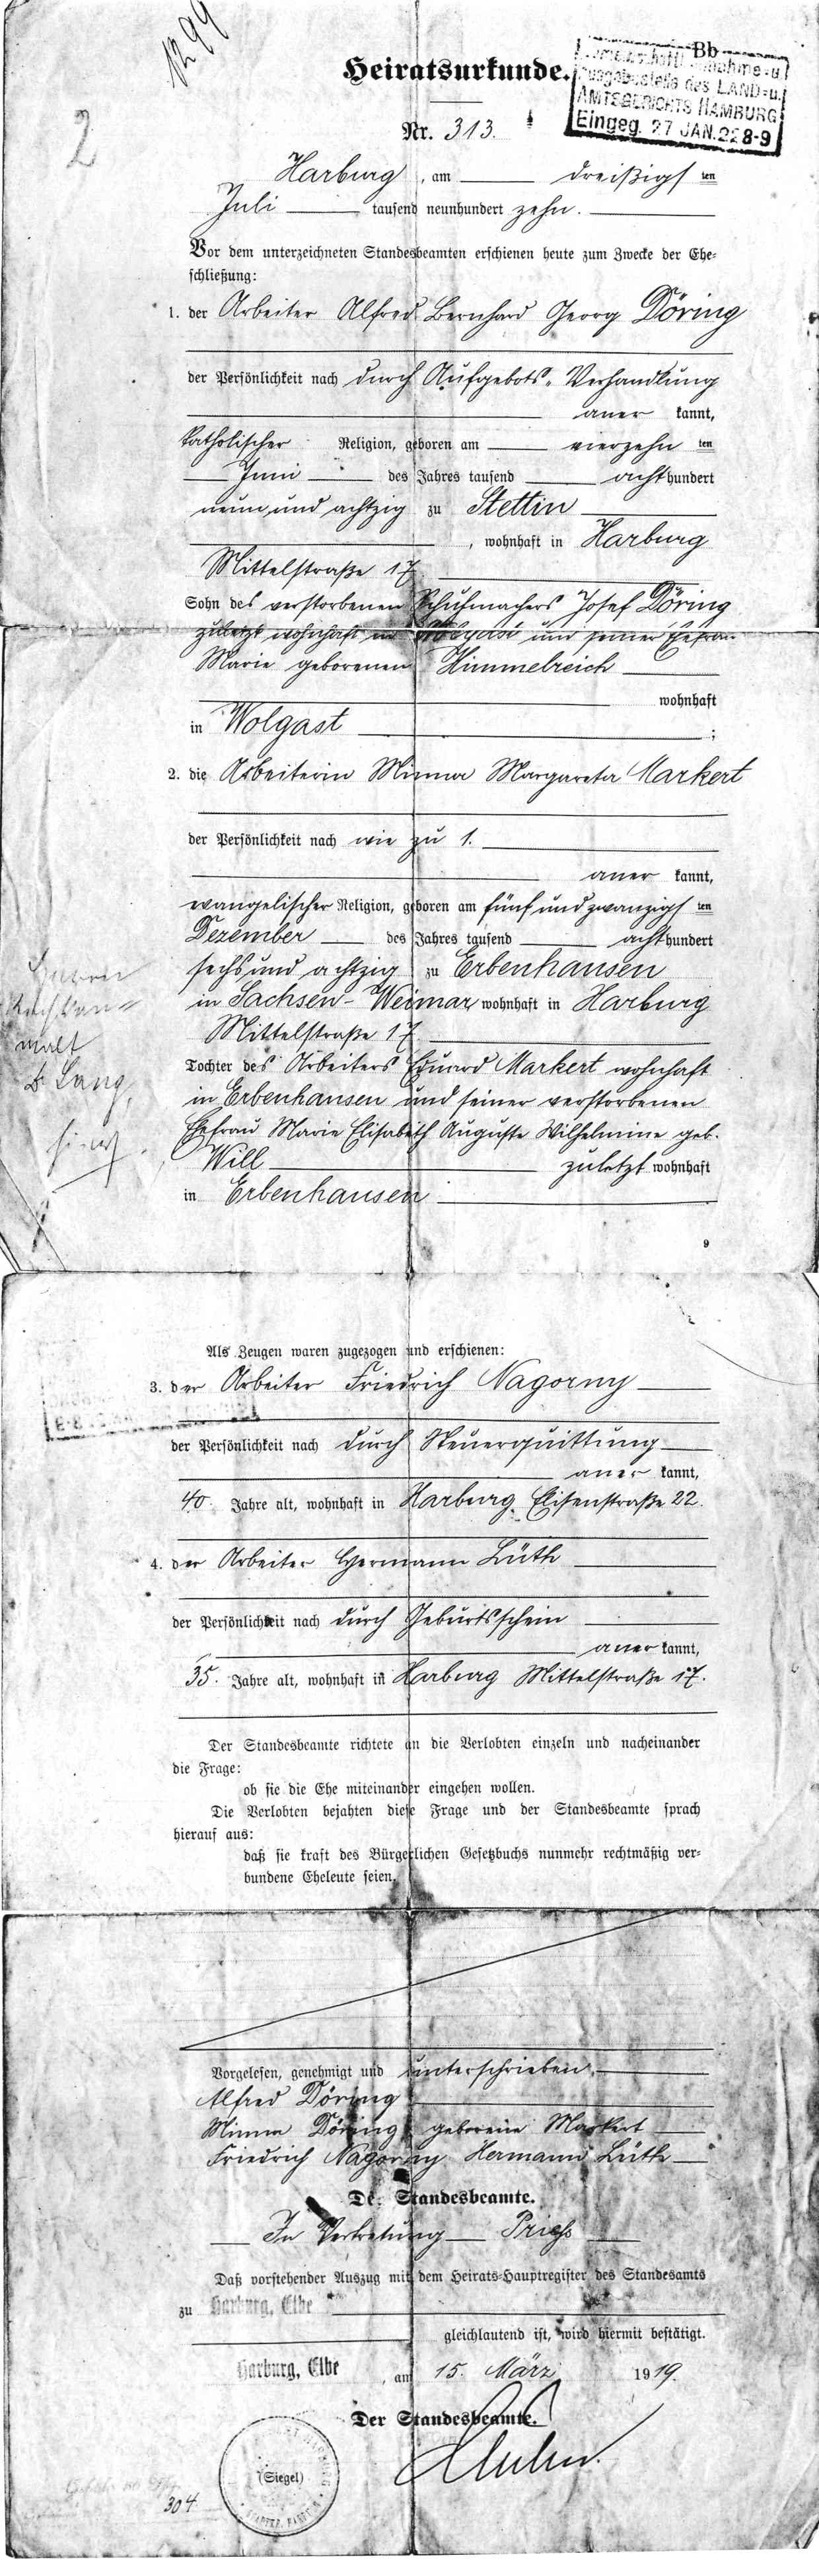 1299
Bb
Heiratsurkunde.
ausgabestelle des LAND=u.
AMTSGERICHTS HAMBURG
Eingeg. 27 JAN. 22 8-9
2
Nr. 313.
Harburg, am dreißigsten
Juli tausend neunhundert zehn.
Vor dem unterzeichneten Standesbeamten erschienen heute zum Zwecke der Ehe=
schließung:
1. der Arbeiter Alfred Bernhard Georg Döring
der Persönlichkeit nach durch Aufgebots=Verhandlung
anerkannt,
katholischer Religion, geboren am vierzehnten
Juni des Jahres tausend achthundert
neun und achtzig zu Stettin
, wohnhaft in Harburg
Mittelstraße 17
Sohn des verstorbenen Schuhmachers Josef Döring
zuletzt wohnhaft in Wolgast und seiner Ehefrau
Marie geborenen Himmelreich
wohnhaft
in Wolgast ;
2. die Arbeiterin Minna Margareta Markert
der Persönlichkeit nach wie zu 1.
anerkannt,
evangelischer Religion, geboren am fünf und zwanzigsten
Dezember des Jahres tausend achthundert
sechs und achtzig zu Erbenhausen
in Sachsen-Weimar wohnhaft in Harburg
Mittelstraße 17
Tochter des Arbeiters Eduard Markert wohnhaft
in Erbenhausen und seiner verstorbenen
Ehefrau Marie Elisabeth Auguste Wilhelmine geb.
Will zuletzt wohnhaft
in Erbenhausen
Herrn
Rechtsan=
walt
Dr Lang,
hier
9
Als Zeugen waren zugezogen und erschienen:
3. der Arbeiter Friedrich Nagorny
der Persönlichkeit nach durch Steuerquittung
anerkannt,
40 Jahre alt, wohnhaft in Harburg, Elisenstraße 22.
4. der Arbeiter Hermann Lüth
der Persönlichkeit nach durch Geburtsschein
anerkannt,
35. Jahre alt, wohnhaft in Harburg Mittelstraße 17.
Der Standesbeamte richtete an die Verlobten einzeln und nacheinander
die Frage:
ob sie die Ehe miteinander eingehen wollen.
Die Verlobten bejahten diese Frage und der Standesbeamte sprach
hierauf aus:
daß sie kraft des Bürgerlichen Gesetzbuchs nunmehr rechtmäßig ver=
bundene Eheleute seien.
Vorgelesen, genehmigt und unterschrieben.
Alfred Döring
Minna Döring geborene Markert
Friedrich Nagorny Hermann Lüth
Der Standesbeamte.
In Vertretung Priess
Daß vorstehender Auszug mit dem Heirats=Hauptregister des Standesamts
zu Harburg, Elbe
gleichlautend ist, wird hiermit bestätigt.
Harburg, Elbe, am 15. März 1919.
Der Standesbeamte.
(Siegel)
304